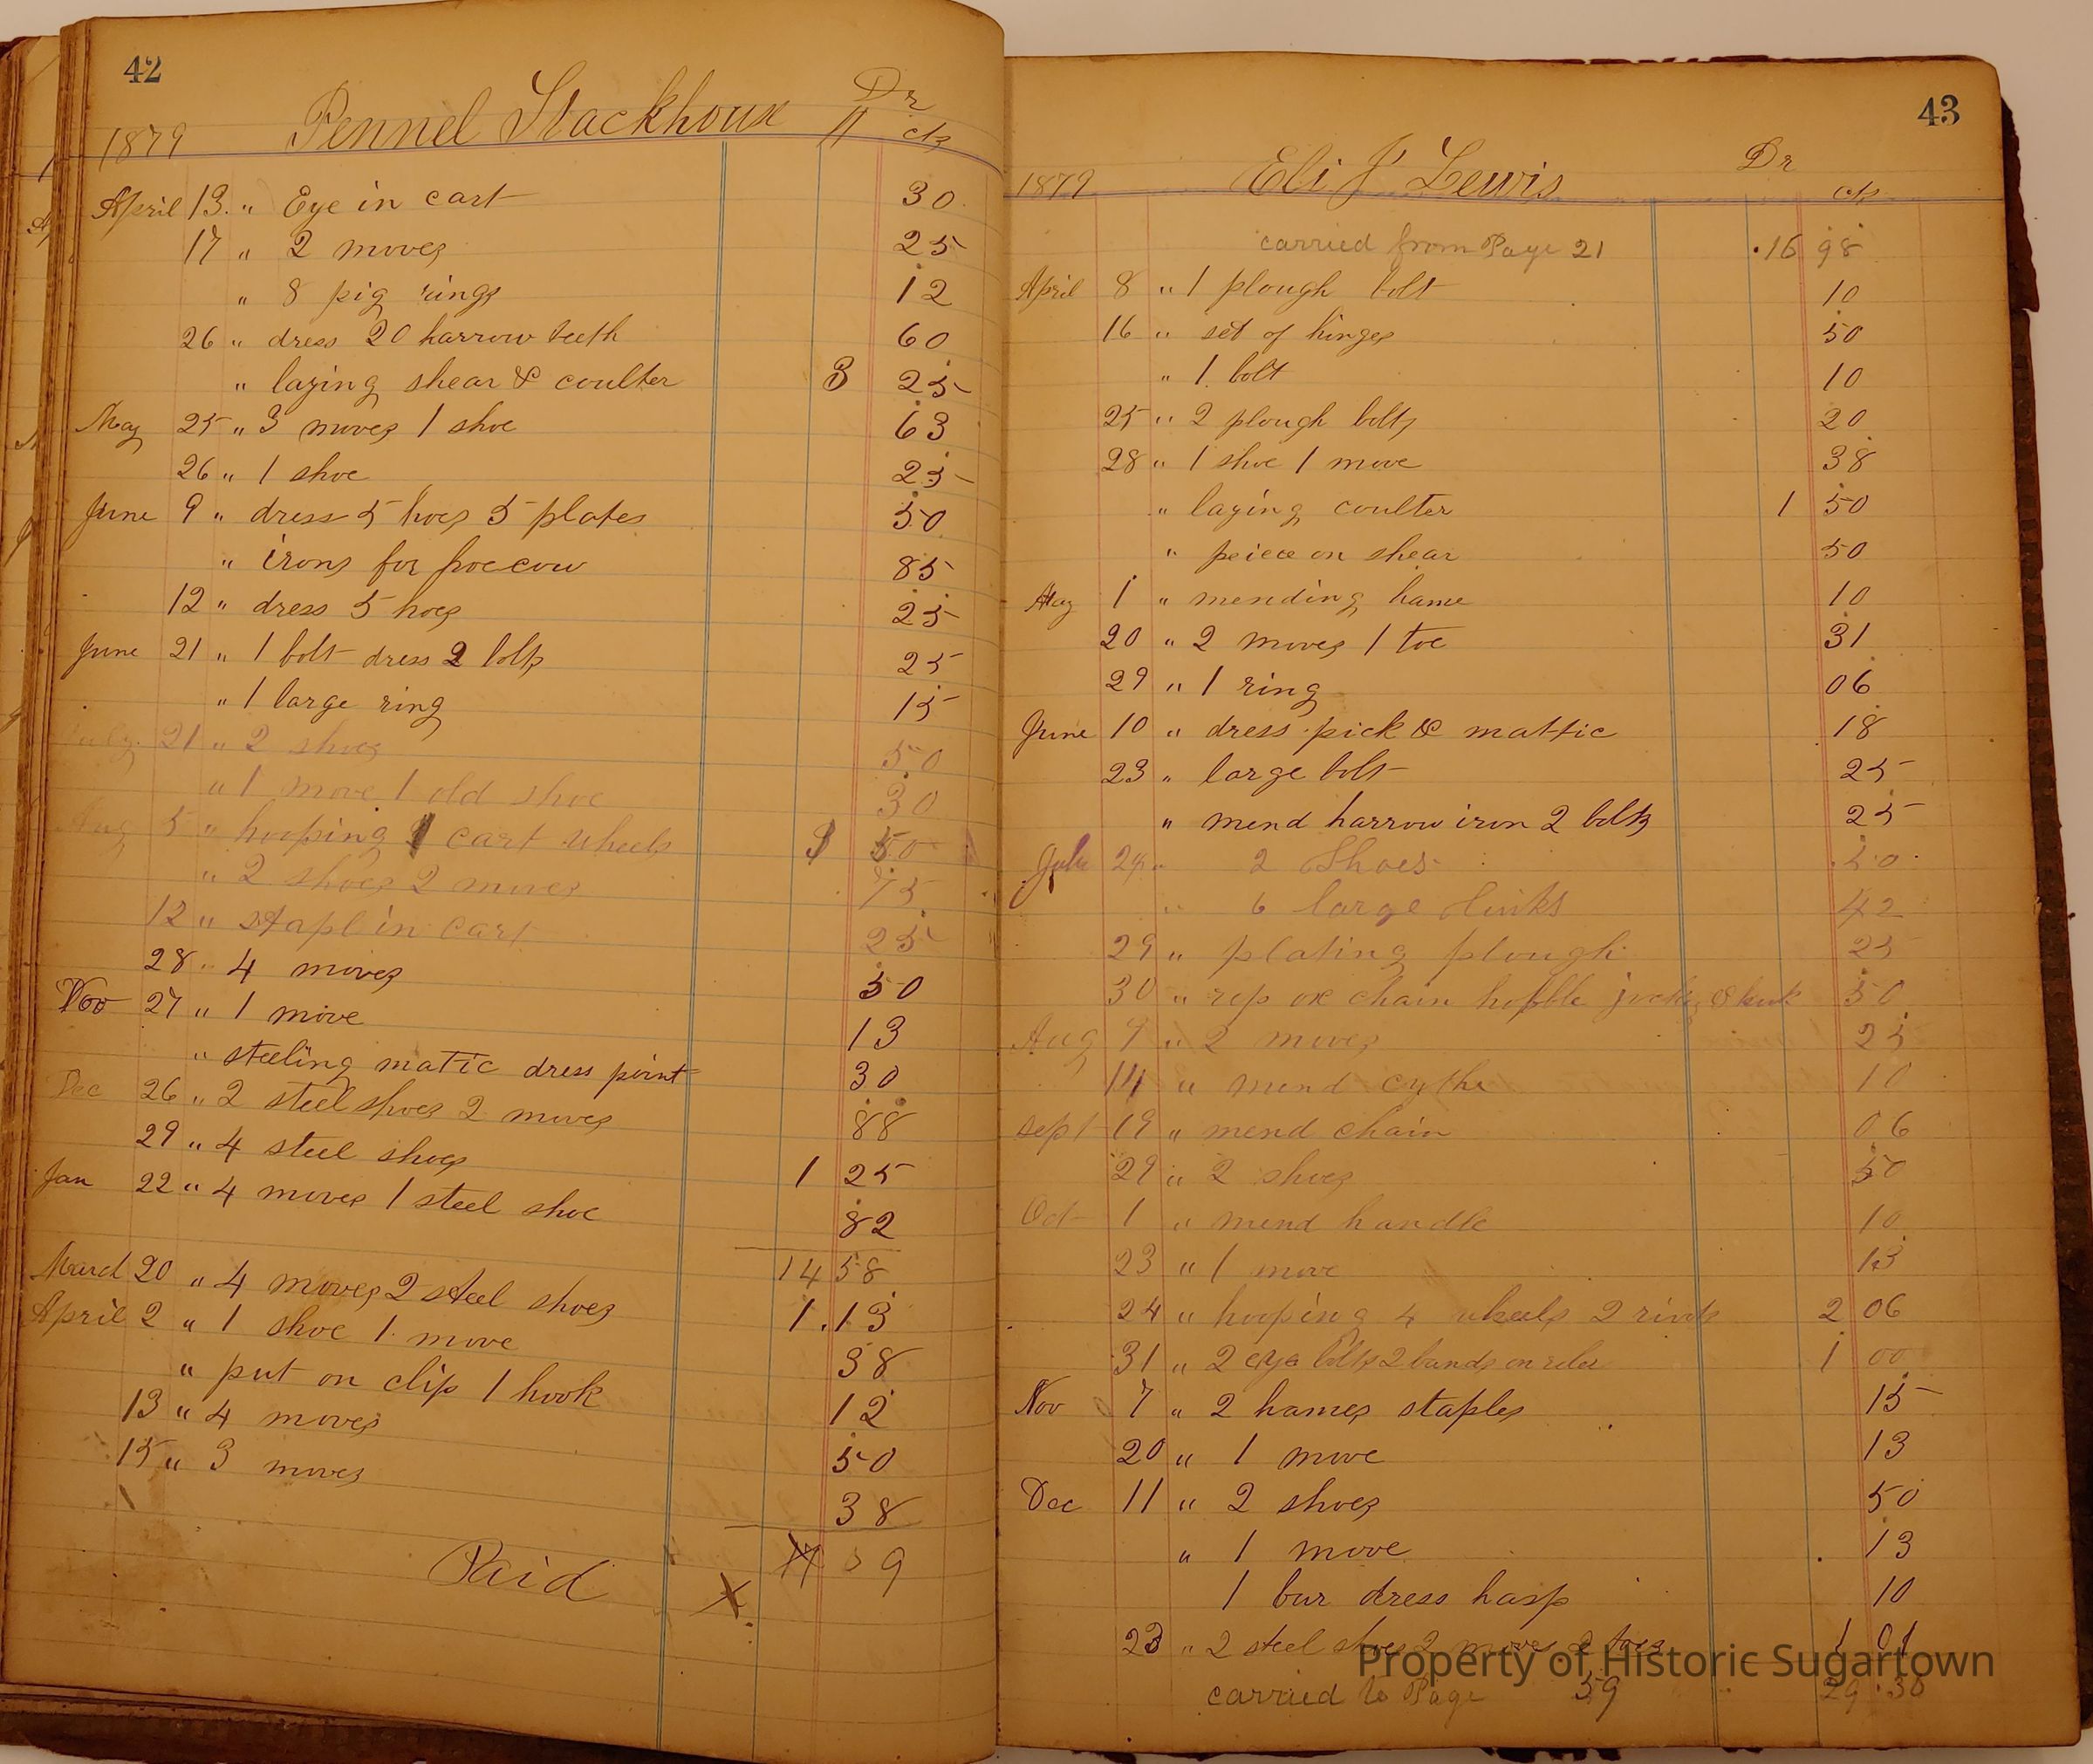 42
Pennel Stackhouse Dr
1879 cts
April 13 " Eye in cart 30
17 " 2 moves 25
" 8 pig rings 12
26 " dress 20 harrow teeth 60
" laying shear & coulter 3 25
May 25 " 3 moves 1 shoe 63
26 " 1 shoe 25
June 9 " dress 5 hoes 5 plates 50
" irons for 85
12 " dress 5 hoes 25
June 21 " 1 bolt dress 2 bolts 25
" 1 large ring 15
July 21 " 2 shoes 50
" 1 move 1 old shoe 30
Aug 5 " hooping cart wheels 50
" 2 shoes 2 moves 75
12 " stapl in cart 25
28 " 4 moves 50
Nov 27 " 1 move 13
" steeling matic dress point 30
Dec 26 " 2 steel shoes 2 moves 88
29 " 4 steel shoes 1 25
Jan 22 " 4 moves 1 steel shoe 82
14 58
March 20 " 4 moves 2 steel shoes 1.13
April 2 " 1 shoe 1 move 38
" put on clip 1 hook 12
13 " 4 moves 50
15 " 3 moves 38
Paid 17 09
X
43
Eli J Lewis Dr
1879 cts
carried from Page 21 16 98
April 8 " 1 plough bolt 10
16 " set of hinges 50
" 1 bolt 10
25 " 2 plough bolts 20
28 " 1 shoe 1 move 38
" laying coulter 1 50
" peiece on shear 50
May 1 " mending hame 10
20 " 2 moves 1 toe 31
29 " 1 ring 06
June 10 " dress pick & mattic 18
23 " large bolt 25
" mend harrow iron 2 bolts 25
July 24 " 2 Shoes 50
" 6 large links 42
29 " plating plough 25
30 " rep ox chain hobble & hook 50
Aug 9 " 2 moves 25
14 " mend cythe 10
Sept 19 " mend chain 06
29 " 2 shoes 50
Oct 1 " mend handle 10
23 " 1 move 13
24 " hooping 4 wheels 2 rivets 2 06
31 " 2 eye bolts 2 bands on 1 00
Nov 7 " 2 hames staples 15
20 " 1 move 13
Dec 11 " 2 shoes 50
" 1 move 13
1 bur dress hasp 10
23 " 2 steel shoes 2 moves 2 toes 1 01
carried to Page 59 29 30
Property of Historic Sugartown